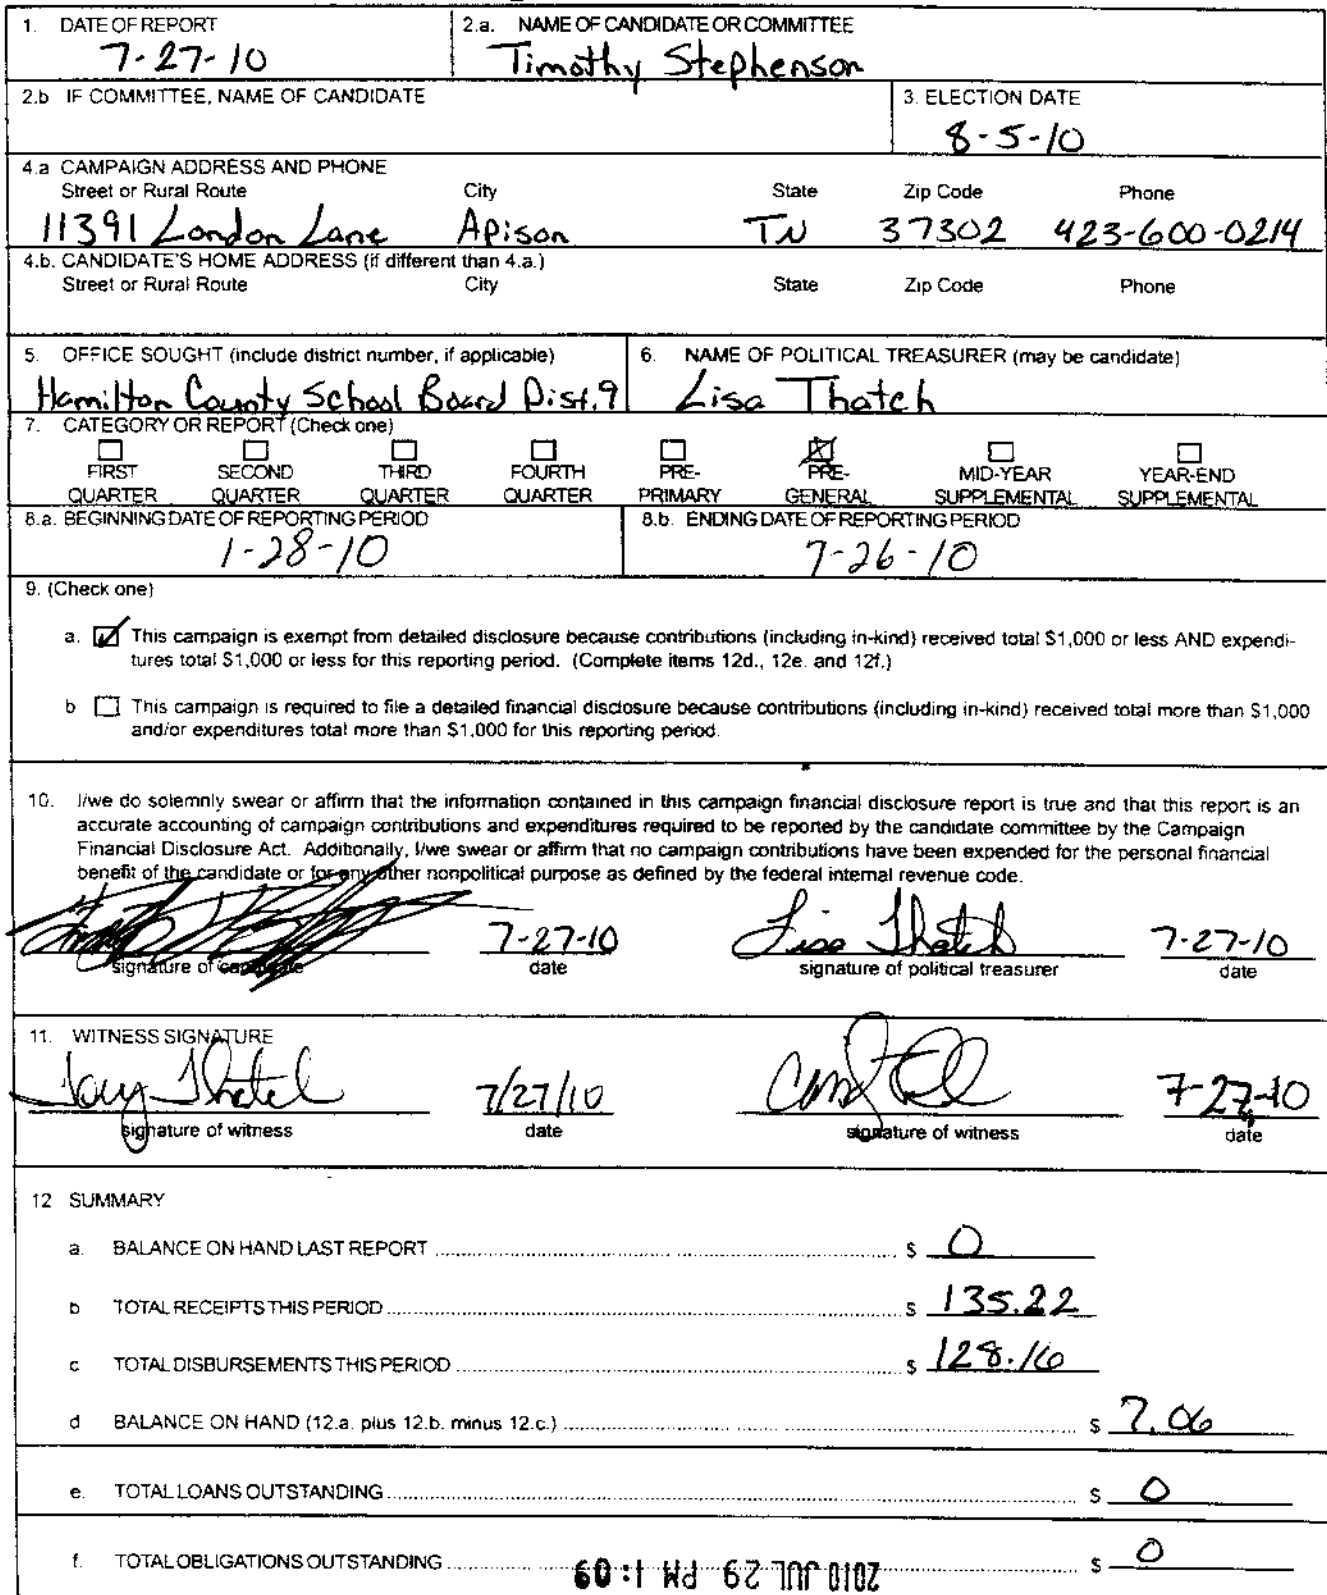 1. DATE OF REPORT
7-27-10
2.a. NAME OF CANDIDATE OR COMMITTEE
Timothy Stephenson
2.b IF COMMITTEE, NAME OF CANDIDATE
3. ELECTION DATE
8-5-10
4.a CAMPAIGN ADDRESS AND PHONE
Street or Rural Route City State Zip Code Phone
11391 London Lane Apison TN 37302 423-600-0214
4.b. CANDIDATE'S HOME ADDRESS (if different than 4.a.)
Street or Rural Route City State Zip Code Phone
5. OFFICE SOUGHT (include district number, if applicable)
Hamilton County School Board Dist. 9
6. NAME OF POLITICAL TREASURER (may be candidate)
Lisa Thatch
7. CATEGORY OR REPORT (Check one)
FIRST QUARTER
SECOND QUARTER
THIRD QUARTER
FOURTH QUARTER
PRE-PRIMARY
PRE-GENERAL
MID-YEAR SUPPLEMENTAL
YEAR-END SUPPLEMENTAL
8.a. BEGINNING DATE OF REPORTING PERIOD
1-28-10
8.b. ENDING DATE OF REPORTING PERIOD
7-26-10
9. (Check one)
a. This campaign is exempt from detailed disclosure because contributions (including in-kind) received total $1,000 or less AND expendi-
tures total $1,000 or less for this reporting period. (Complete items 12d., 12e. and 12f.)
b This campaign is required to file a detailed financial disclosure because contributions (including in-kind) received total more than $1,000
and/or expenditures total more than $1,000 for this reporting period.
10. I/we do solemnly swear or affirm that the information contained in this campaign financial disclosure report is true and that this report is an
accurate accounting of campaign contributions and expenditures required to be reported by the candidate committee by the Campaign
Financial Disclosure Act. Additionally, I/we swear or affirm that no campaign contributions have been expended for the personal financial
benefit of the candidate or for any other nonpolitical purpose as defined by the federal internal revenue code.
7-27-10 Lisa Thatch 7-27-10
signature of candidate date signature of political treasurer date
11. WITNESS SIGNATURE
7/27/10 7-27-10
signature of witness date signature of witness date
12 SUMMARY
a. BALANCE ON HAND LAST REPORT $ 0
b TOTAL RECEIPTS THIS PERIOD $ 135.22
c TOTAL DISBURSEMENTS THIS PERIOD $ 128.16
d BALANCE ON HAND (12.a. plus 12.b. minus 12.c.) $ 7.06
e. TOTAL LOANS OUTSTANDING $ 0
f. TOTAL OBLIGATIONS OUTSTANDING $ 0
2010 JUL 29 PM 1:09